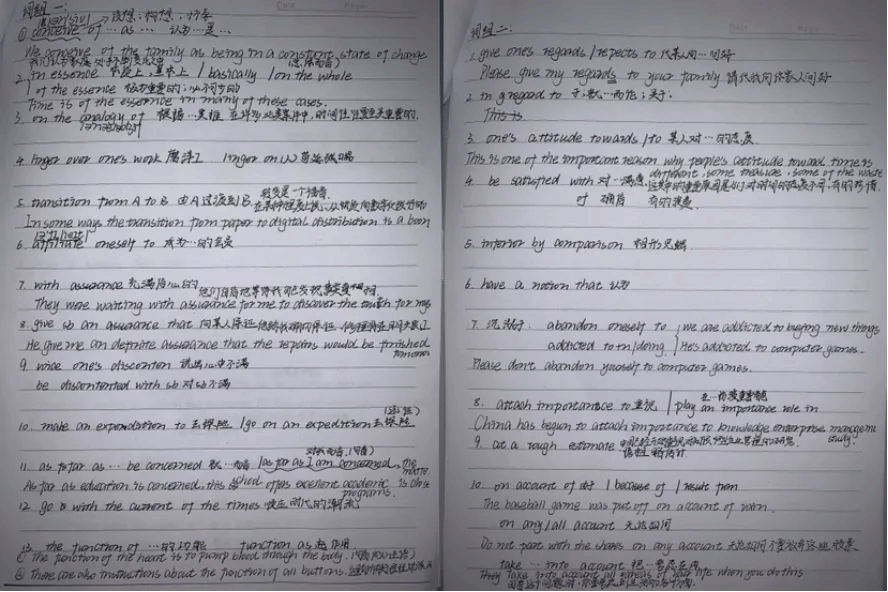 词组一:
① conceive of … as … 认为…是… 设想;构想;
We conceive of the family as being in a constant state of change
2. in essence 本质上,基本上 / basically / on the whole
/ of the essence 极为重要的;必不可少的
Time is of the essence in many of these cases.
3. on the analogy of 根据…类推 在许多此类案件中,时间性是至关重要的.
4. linger over one's work 磨洋工 linger on
5. transition from A to B 由A过渡到B
In some ways the transition from paper to digital distribution is a boon
6. affiliate oneself to 成为…的会员
7. with assurance 充满信心的
They were waiting with assurance for me to discover the truth for mys
8. give sb an assurance that 向某人保证
He give me an definite assurance that the repairs would be finished
tomorrow
9. voice one's discontent 说出心中不满
be discontented with sb 对sb不满
10. make an expendition to 去探险 / go on an expedition 去探险
11. as far as … be concerned 就…而言 / as far as I am concerned, the
matter
As far as education is concerned, this school offers excellent academic is close
programs.
12. go with the current of the times 顺应时代的潮流
13. the function of …的功能 function as 起作用
① The function of the heart is to pump blood through the body.
② There are also instructions about the function of all buttons.
词组二:
1. give one's regards / respects to 代某人向…问好
Please give my regards to your family 请代我向你家人问好
2. in gregard to 于;就…而论;关于
This is
3. one's attitude towards / to 某人对…的态度
This is one of the important reason why people's attitude toward time is
different, some treasure, some of the waste
4. be satisfied with 对…满意
of 确信 有的浪费
5. inferior by comparison 相形见绌
6. have a notion that 认为
7. 沉溺于: abandon oneself to / we are addicted to buying new things
addicted to n/doing. / He's addicted to computer games.
Please don't abandon youself to computer games.
8. attach importance to 重视 / play an importance role in
China has begun to attach importance to knowledge enterprise managem
study.
9. at a rough estimate
10. on account of 由于 / because of / result from
The baseball game was put off on account of rain.
on any/all account 无论如何
Do not part with the shares on any account 无论如何不要放弃这些股票.
take … into account 把…考虑在内
They take into account all areas of your life when you do this